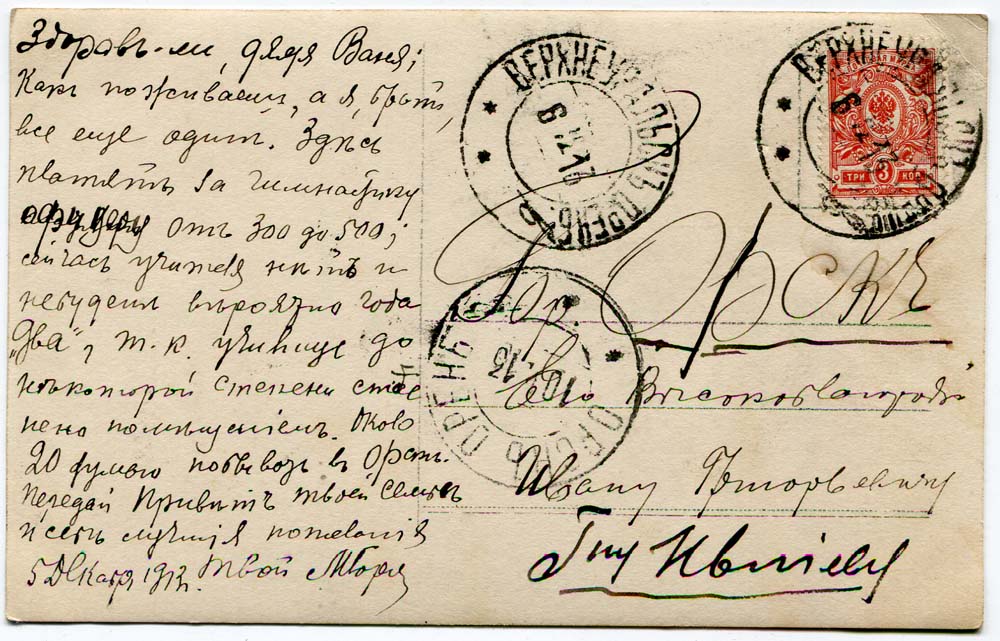 Здоровъ-ли, дядя Ваня;
Какъ поживаешь, а я, братъ,
все еще одинъ. Здѣсь
платятъ за гимнастику
отъ 300 до 500;
сейчасъ учителя нѣтъ и
небудетъ вѣроятно года
"два", т.к. училище до
нѣкоторой степени стѣс
нено помѣщеніемъ. Около
20 думаю побывать въ Оренб.
Передай привѣтъ твоей семьѣ
и всѣ лучшія пожеланія
5 Декабр 1913 г. Твой
ВЕРХНЕУРАЛЬСКЪ ОРЕНБ.
6 12 13
ВЕРХНЕУРАЛЬСКЪ ОРЕНБ.
6 12 13
ТРИ 3 КОП.
Гор. ОРСКЪ
ОРСКЪ ОРЕНБ.
10 12 13
Его Высокоблагородію
Ивану
Гну